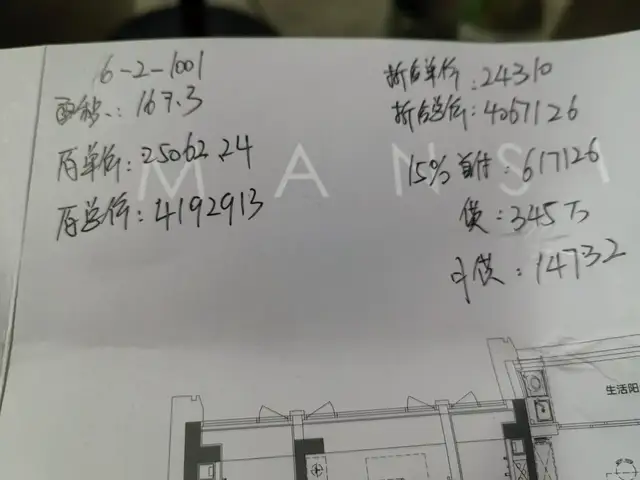 6-2-1001
面积: 167.3
原单价: 25062.24
原总价: 4192913
折后单价: 24310
折后总价: 4067126
15% 首付: 617126
贷: 345万
月供: 14732
MANSI
生活阳